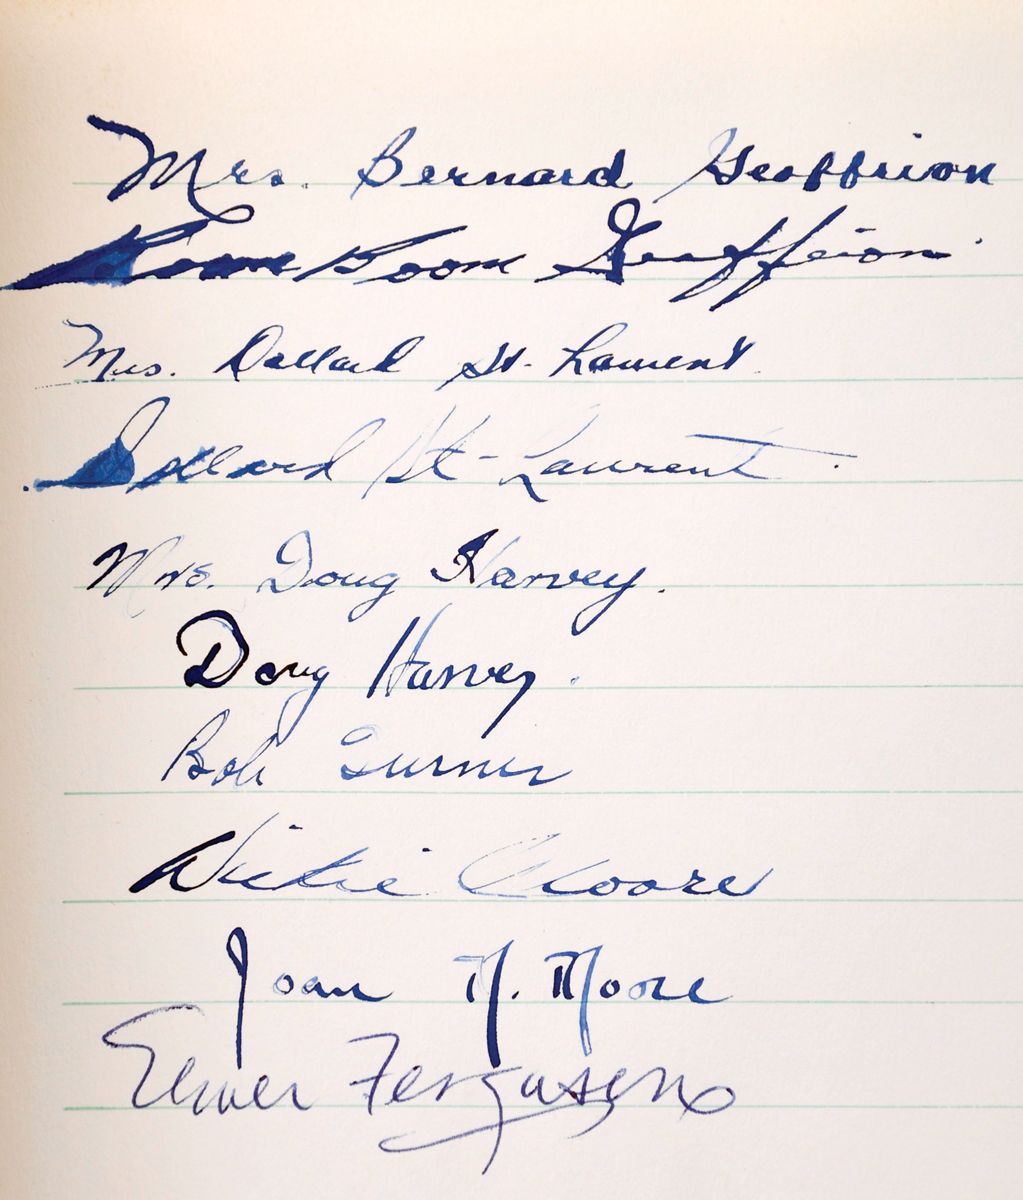 Mrs. Bernard Geoffrion
Boom Boom Geoffrion
Mrs. Dollard St. Laurent
Dollard St-Laurent
Mrs. Doug Harvey.
Doug Harvey.
Bob Turner
Dickie Moore
Joan M. Moore
Elmer Ferguson